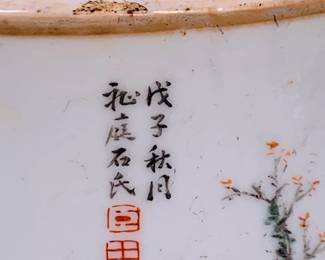 戊子秋月
祉庭石氏